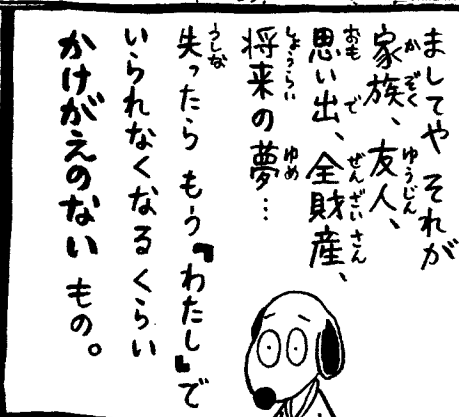 ましてや それが
家族、友人、
思い出、全財産、
将来の夢…
失ったら もう『わたし』で
いられなくなるくらい
かけがえのない もの。